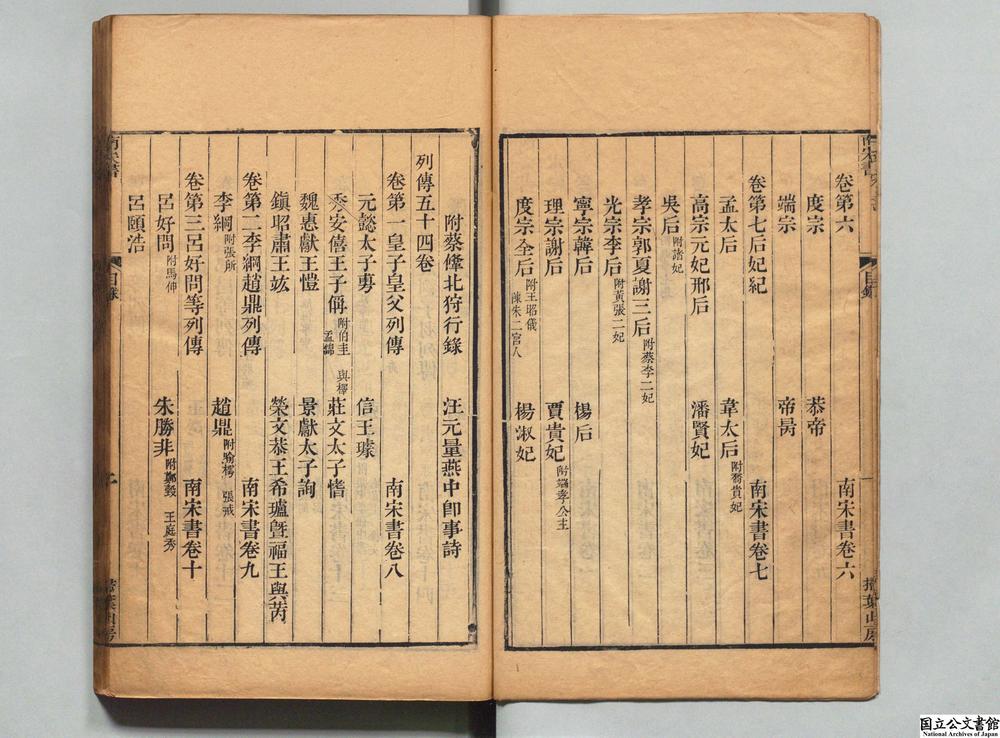 南宋書 目錄 一 掃葉山房
卷第六 南宋書卷六
度宗 恭帝
端宗 帝昺
卷第七后妃紀 南宋書卷七
孟太后 韋太后附喬貴妃
高宗元妃邢后 潘賢妃
吳后附諸妃
孝宗郭夏謝三后附蔡李二妃
光宗李后附黃張二妃
寧宗韓后 楊后
理宗謝后 賈貴妃附端孝公主
度宗全后附王昭儀 陳朱二宮人 楊淑妃
附蔡鞗北狩行錄 汪元量燕中卽事詩
列傳五十四卷
卷第一皇子皇父列傳 南宋書卷八
元懿太子旉 信王璩
秀安僖王子偁附伯圭 孟錦 與檡 莊文太子愭
魏惠獻王愷 景獻太子詢
鎭昭肅王竑 榮文恭王希瓐曁福王與芮
卷第二李綱趙鼎列傳 南宋書卷九
李綱附張所 趙鼎附喻樗 張戒
卷第三呂好問等列傳 南宋書卷十
呂好問附馬伸 朱勝非附鄭瑴 王庭秀
呂頤浩
南宋書 目錄 掃葉山房
国立公文書館
National Archives of Japan